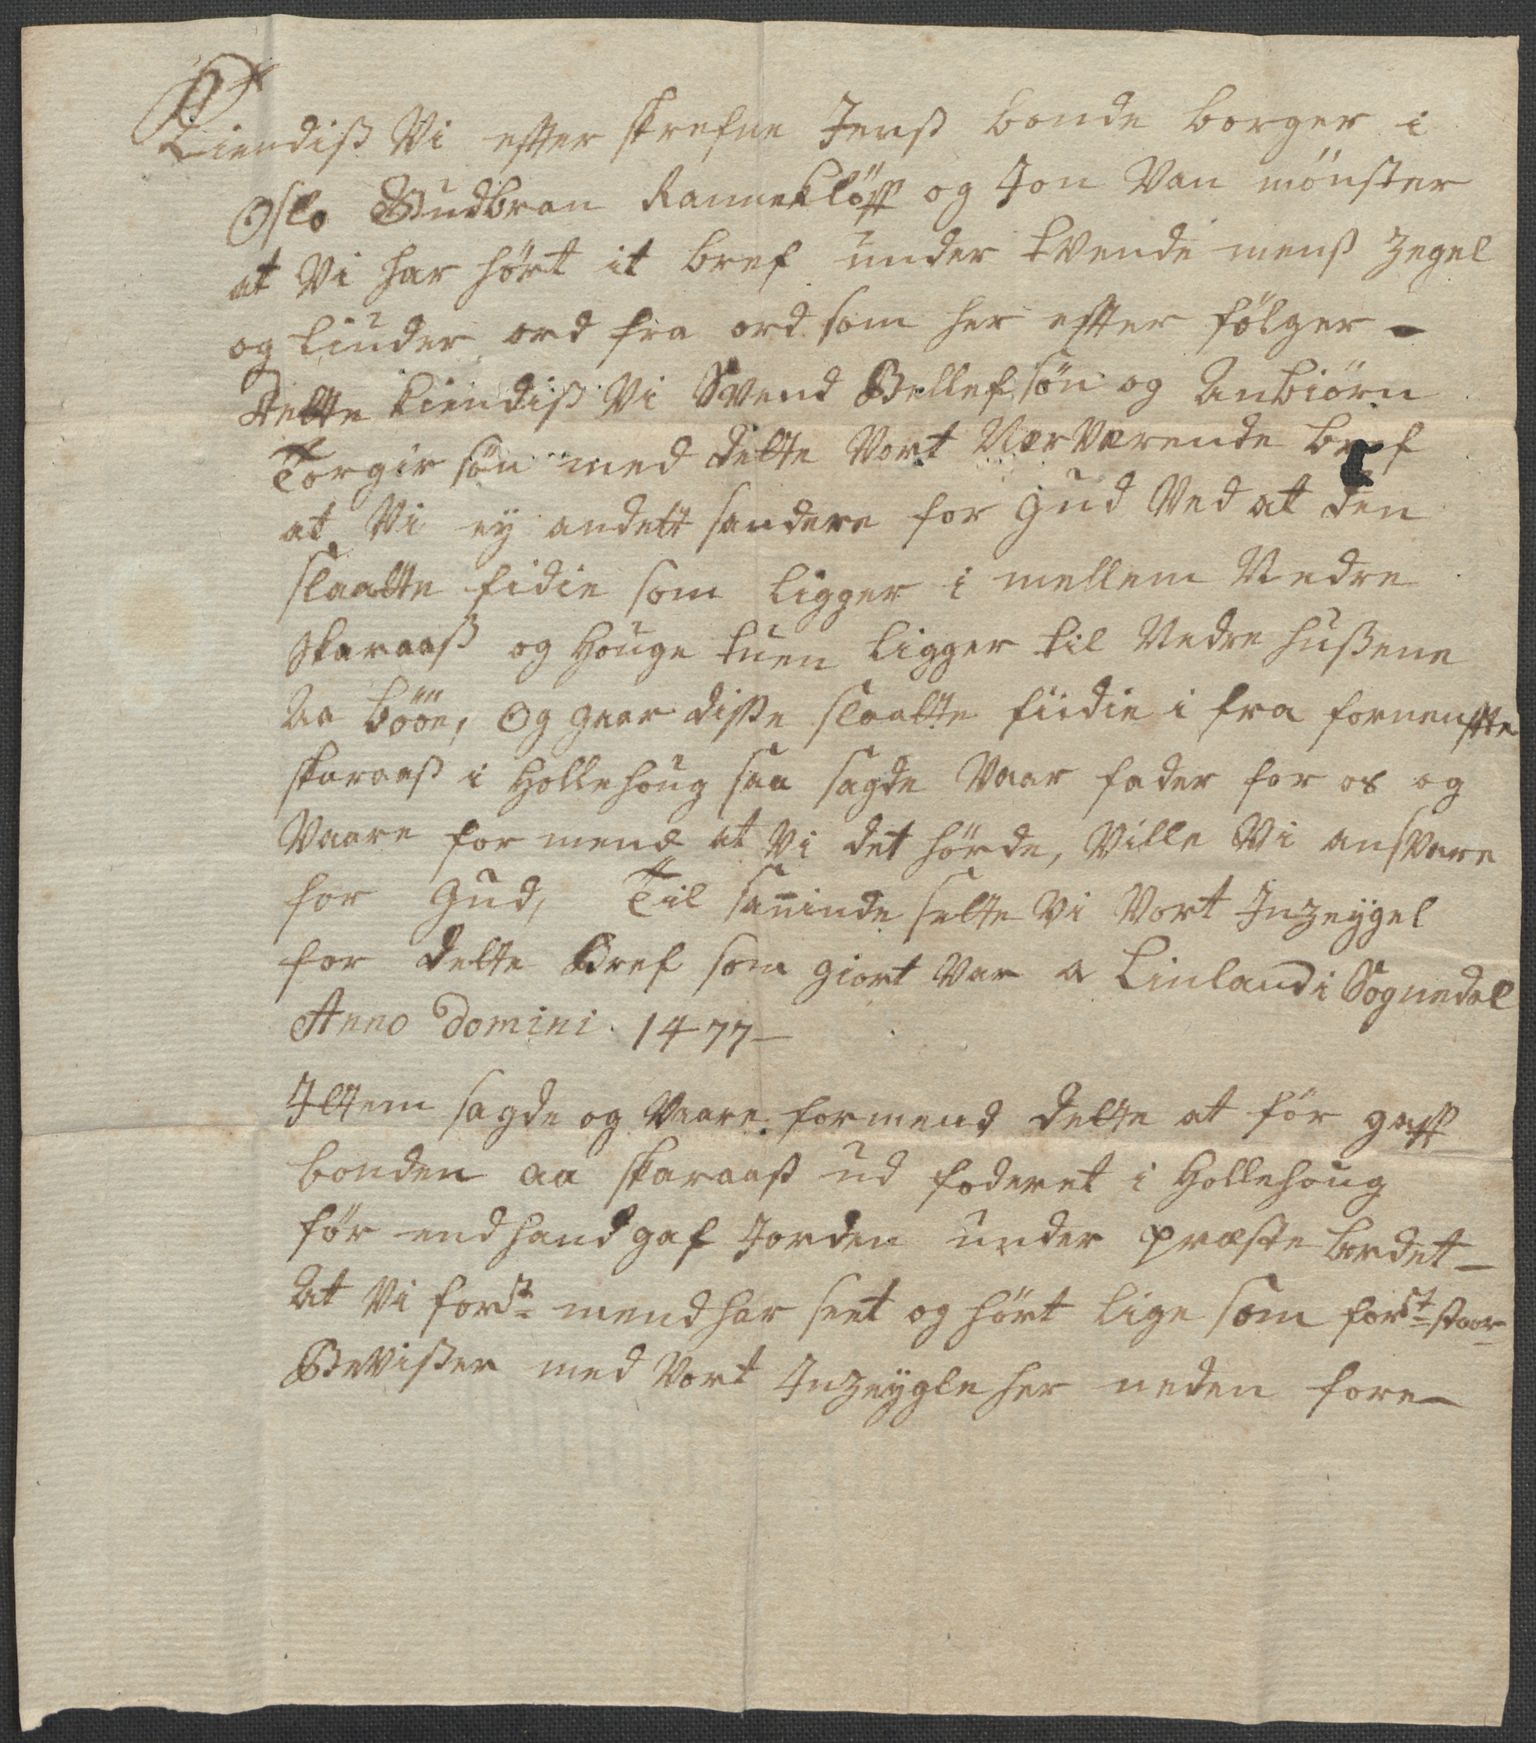 Kiendiß Vi efter skrefne Jenß bonde borger i
Oslo Gudbran Ramneklöff og Jon Van mönster
at Vi har hört it bref under tvende menß zegel
og liuder ord fra ord som her efter fölger –
Dette kiendiß Vi Svend Bellefsön og Anbiörn
Torgirsön med dette Vort Nærværende bref
at Vi ey andett sandere for Gud Ved at den
slaatte fidie som ligger i mellem Nedre
Skaraaß og Houge tuen ligger til Nedre hußene
Aa böön, og gaar disse slaatte fiidie i fra fornenffte
skaraaß i Hollehoug saa sagde Vaar fader for os og
Vaare for mend at Vi det hörde, Ville Vi ansvare
for Gud, Til saninde sette Vi Vort Inzeygel
for dette Bref som giort Var a Linland i Sognedal
Anno Domini 1477 –
Ittem sagde og Vaare formend dette at för gaff
bonden aa skaraaß ud foderet i Hollehoug
för end hand gaf Jorden under præste bordet –
At Vi forst mend har seet og hört lige som forst staar
Bevisßer med Vort Inzeygle her neden fore –